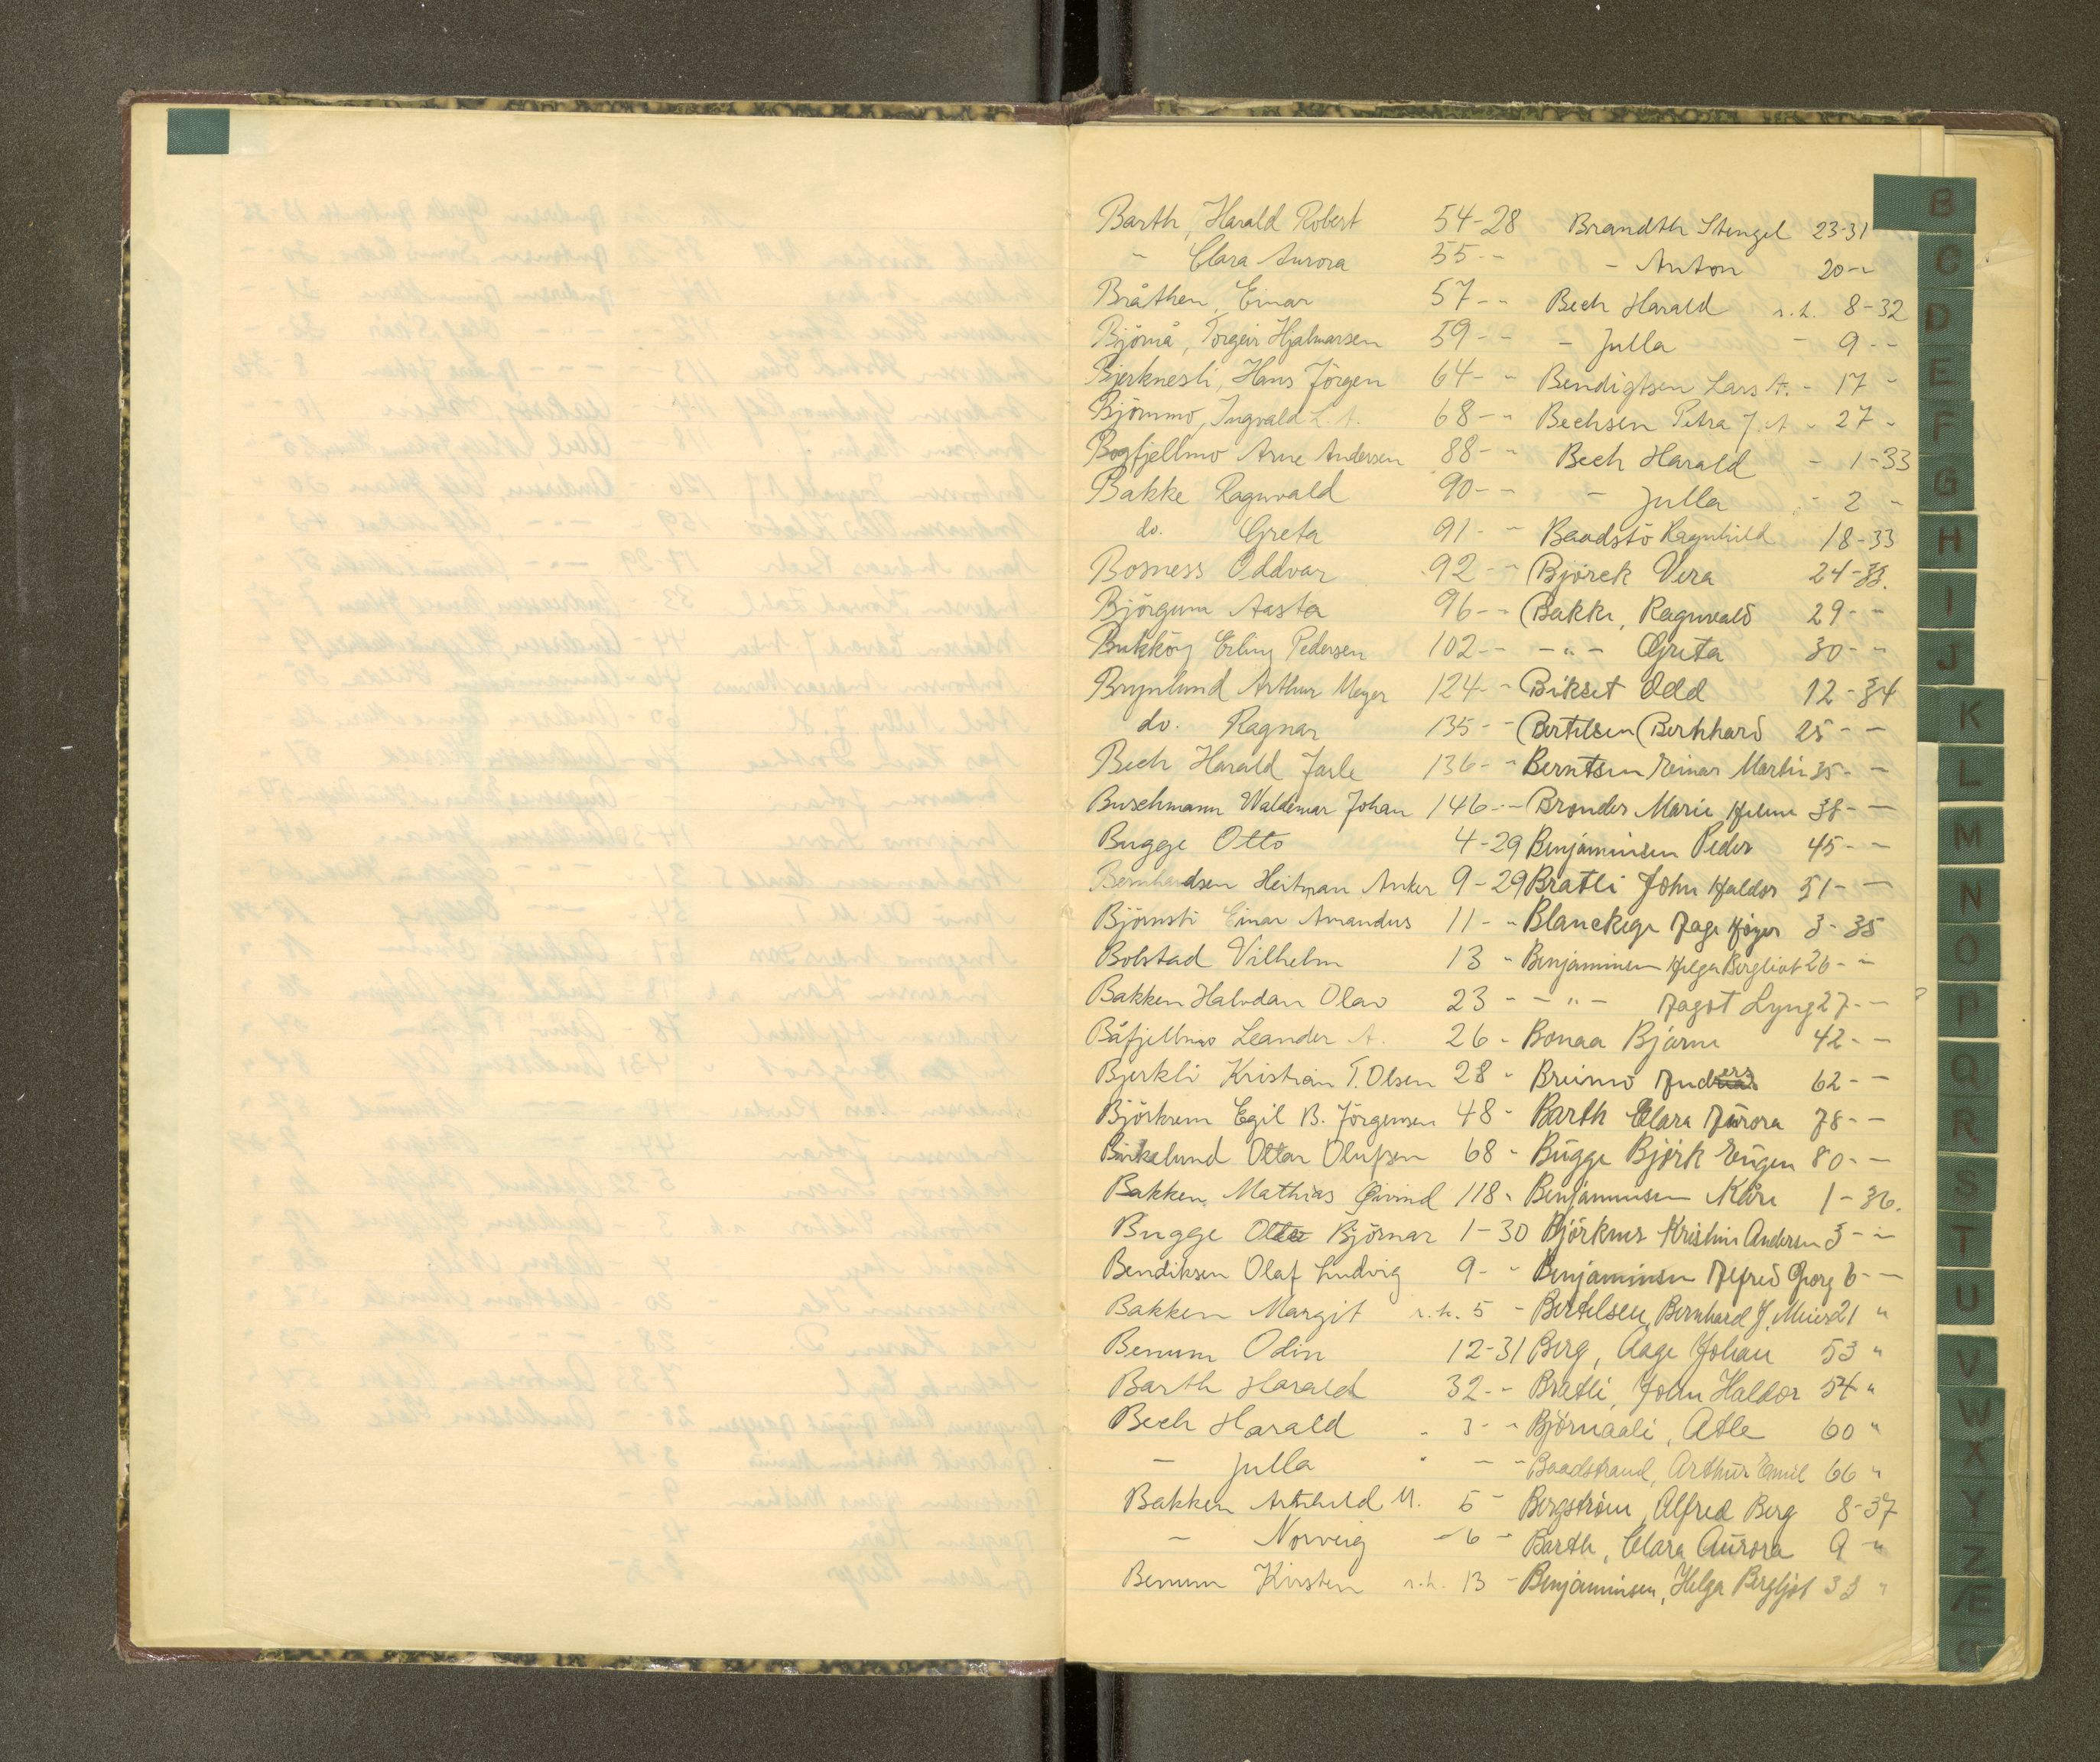 Barth, Harald Robert 54-28
" Clara Aurora 55 - "
Bråthen, Einar 57 - "
Björnå, Torgeir Hjalmarsen 59 - "
Bjerknesli, Hans Jörgen 64 - "
Björnmo, Ingvald L. A. 68 - "
Bogfjellmo Arne Andersen 88 - "
Bakke Ragnvald 90 - "
do. Greta 91 - "
Bosness Oddvar 92 - "
Björgum Aasta 96 - "
Erling Pedersen 102 - "
Brynlund Arthur Meyer 124 - "
do. Ragnar 135 - "
Bech Harald Jarle 136 - "
Buschmann Waldemar Johan 146 - "
Bugge Otto 4-29
Bernhardsen Heitman Anker 9-29
Björnsti Einar Amandus 11 - "
Bolstad Vilhelm 13 "
Bakken Halvdan Olav 23 -
Båfjellmo Leander A. 26 -
Bjerkli Kristian T. Olsen 28 "
Björkrem Egil B. Jörgensen 48 -
Birkelund Ottar Olufsen 68 -
Bakken Mathias Øivind 118 "
Bugge Otto Björnar 1-30
Bendiksen Olaf Ludvig 9 - "
Bakken Margit r.h. 5 -
Benum Odin 12-31
Barth Harald 32 - "
Bech Harald " 3 - "
- Julla " - -
Bakken M. 5 -
- Norveig - 6 -
Benum Kirsten r.h. 13 -
Brandth Stengel 23-31
- Anton 20 - "
Bech Harald r.h. 8-32
- Julla - 9 - -
Bendigtsen Lars A. - 17 -
Bechsen Petra J. A - 27 -
Bech Harald - 1-33
- Julla - 2 -
Baadstö Ragnhild 18-33
Björck Vera 24-33.
Bakke, Ragnvald 29 - "
- " - Greta 30 - "
Bikset Odd 12-34
Bertelsen Bernhard 25 - -
Berntsen Einar Martin 35 - -
Brønder Marie Helene 38 - -
Benjaminsen Peder 45 - -
Bratli John Haldor 51 - -
Aage Høyer 3-35
Benjaminsen Helga Bergliot 26 - "
- " - Aagot Lyng 27 - -
Bonaa Bjarne 42 - -
Breimo Anders 62 - -
Barth Clara Aurora 78 - -
Bugge Björk Eugen 80 - -
Benjaminsen Kåre 1-36.
Björknes Kristine Andersen 3 - "
Benjaminsen Alfred Georg 6 - -
Bertelsen, Bernhard J. Meier 21 "
Berg, Aage Johan 53 "
Bratli, John Haldor 54 "
Björnaali, Atle 60 "
Baadstrand, Arthur Emil 66 "
Bergström, Alfred Berg 8-37
Barth, Clara Aurora 9 - "
Benjaminsen, Helga Bergljot 33 "
B
C
D
E
F
G
H
I
J
K
L
M
N
O
P
Q
R
S
T
U
V
W
X
Y
Z
Æ